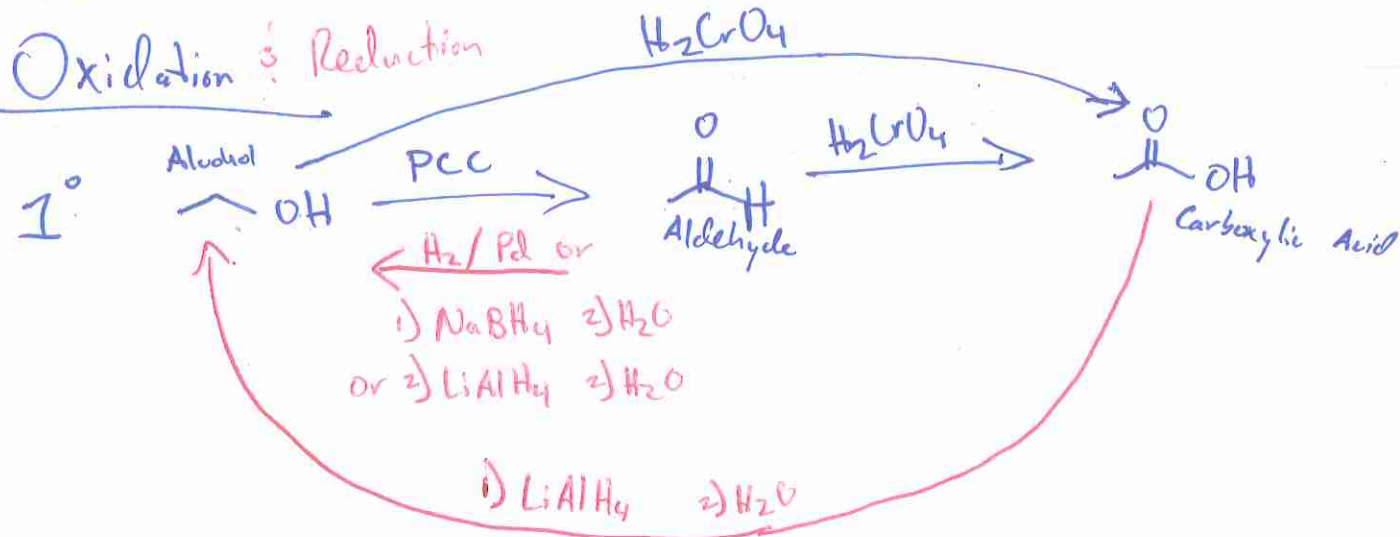 Oxidation & Reduction
H2CrO4
1° Alcohol OH
PCC
O
H
Aldehyde
H2CrO4
O
OH
Carboxylic Acid
H2/Pd or
1) NaBH4 2) H2O
or 2) LiAlH4 2) H2O
1) LiAlH4 2) H2O